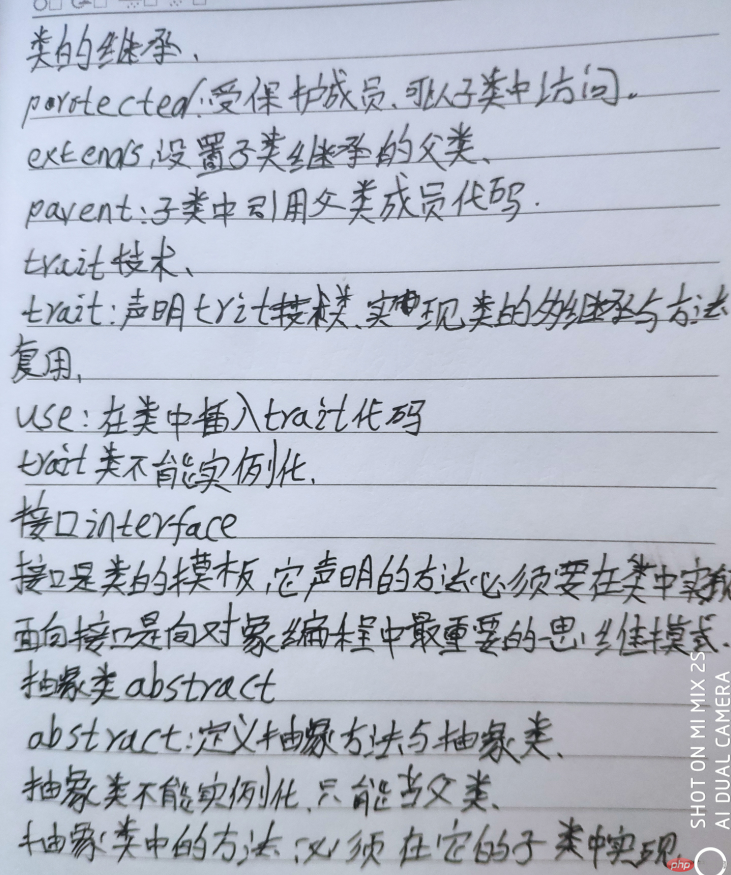 类的继承、
parotected:受保护成员、可以子类中访问。
extends,设置子类继承的父类、
parent:子类中引用父类成员代码.
trait技术、
trait:声明trit技术类、实现类的多继承与方法
复用,
use:在类中插入trait代码
trait类不能实例化、
接口interface
接口是类的模板,它声明的方法必须要在类中实现
面向接口是向对象编程中最重要的思维模式.
抽象类abstract
abstract:定义抽象方法与抽象类、
抽象类不能实例化、只能当父类、
抽象类中的方法,必须在它的子类中实现
SHOT ON MI MIX 2S
AI DUAL CAMERA
php